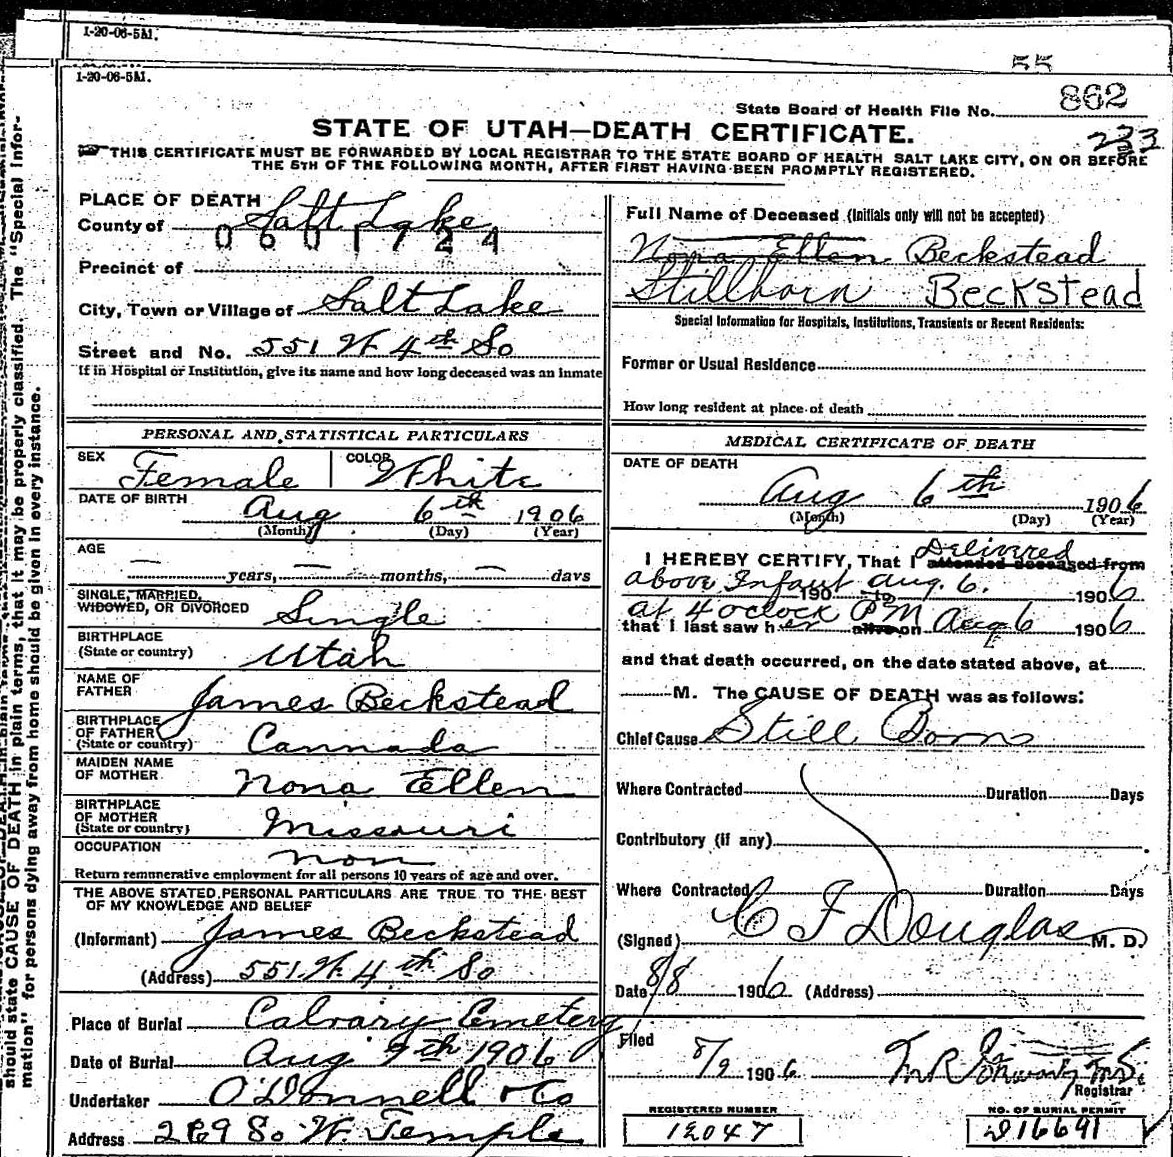 I-20-06-5M.
I-20-06-5M.
55
State Board of Health File No. 862
STATE OF UTAH—DEATH CERTIFICATE.
233
THIS CERTIFICATE MUST BE FORWARDED BY LOCAL REGISTRAR TO THE STATE BOARD OF HEALTH SALT LAKE CITY, ON OR BEFORE
THE 5TH OF THE FOLLOWING MONTH, AFTER FIRST HAVING BEEN PROMPTLY REGISTERED.
PLACE OF DEATH
County of Salt Lake
0601724
Precinct of
City, Town or Village of Salt Lake
Street and No. 551 W 4th So
If in Hospital or Institution, give its name and how long deceased was an inmate
Full Name of Deceased (Initials only will not be accepted)
Nona Ellen Beckstead
Stillborn Beckstead
Special Information for Hospitals, Institutions, Transients or Recent Residents:
Former or Usual Residence
How long resident at place of death
PERSONAL AND STATISTICAL PARTICULARS
SEX Female COLOR White
DATE OF BIRTH Aug 6th 1906
(Month) (Day) (Year)
AGE
— years, — months, — days
SINGLE, MARRIED,
WIDOWED, OR DIVORCED Single
BIRTHPLACE
(State or country) Utah
NAME OF
FATHER James Beckstead
BIRTHPLACE
OF FATHER
(State or country) Cannada
MAIDEN NAME
OF MOTHER Nona Ellen
BIRTHPLACE
OF MOTHER
(State or country) Missouri
OCCUPATION non
Return remunerative employment for all persons 10 years of age and over.
THE ABOVE STATED PERSONAL PARTICULARS ARE TRUE TO THE BEST
OF MY KNOWLEDGE AND BELIEF
(Informant) James Beckstead
(Address) 551 W 4th So
Place of Burial Calvary Cemetery
Date of Burial Aug 9th 1906
Undertaker O'Donnell & Co
Address 269 So W. Temple
MEDICAL CERTIFICATE OF DEATH
DATE OF DEATH
Aug 6th 1906
(Month) (Day) (Year)
Delivered
I HEREBY CERTIFY, That I attended deceased from
above Infant Aug. 6.
190 to 1906
at 4 oclock PM
that I last saw her alive on Aug 6 1906
and that death occurred, on the date stated above, at
M. The CAUSE OF DEATH was as follows:
Chief Cause Still Born
Where Contracted Duration Days
Contributory (if any)
Where Contracted Duration Days
(Signed) C F Douglas M. D.
Date 8/8 1906 (Address)
Filed
8/9 1906
Registrar
REGISTERED NUMBER
12047
NO. OF BURIAL PERMIT
should state CAUSE OF DEATH in plain terms, that it may be properly classified. The "Special Infor-
mation" for persons dying away from home should be given in every instance.